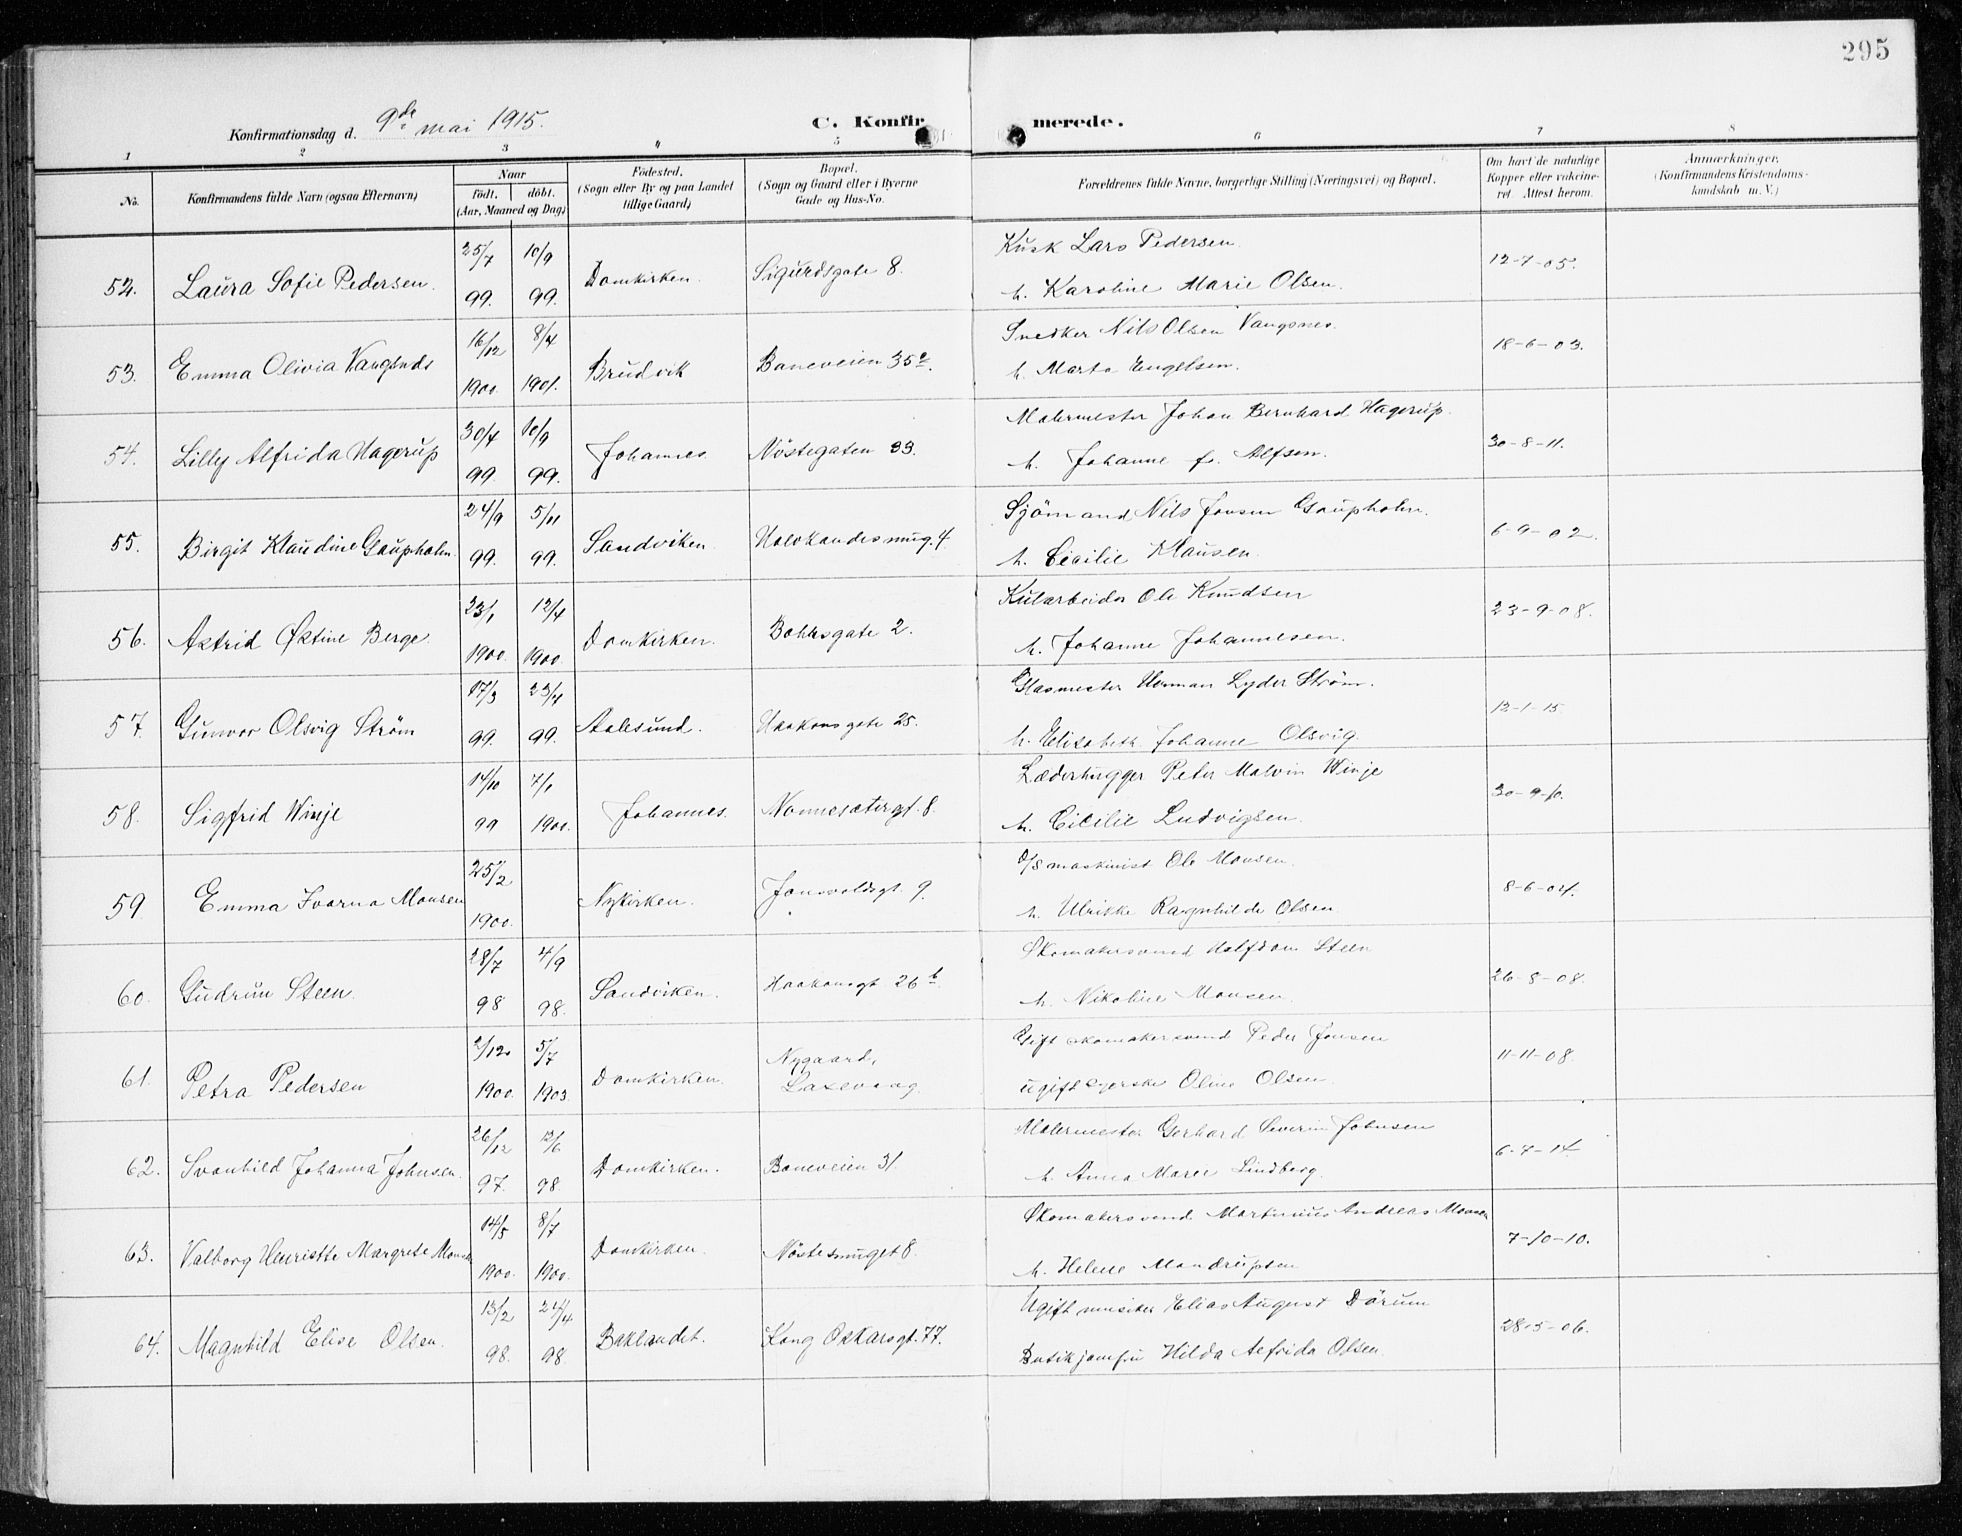 295
Konfirmationsdag d. 9de mai 1915.
C. Konfirmerede.
1 2 3 4 5 6 7 8
No. Konfirmandens fulde Navn (ogsaa Efternavn) Naar födt. döbt. (Aar, Maaned og Dag) Födested. (Sogn eller By og paa Landet tillige Gaard) Bopæl. (Sogn og Gaard eller i Byerne Gade og Hus-No. Forældrenes fulde Navne, borgerlige Stilling (Næringsvei) og Bopæl. Om havt de naturlige Kopper eller vakcineret. Attest herom. Anmærkninger. (Konfirmandens Kristendomskundskab m. V.)
52. Laura Sofie Pedersen. 25/7 99. 10/9 99. Domkirken. Sigurdsgate 8. Kusk Lars Pedersen. h. Karoline Marie Olsen. 12-7-05.
53. Emma Olivia Vangsnes 16/12 1900. 8/4 1901. Brudvik Baneveien 35 Snedker Nils Olsen Vangsnes. h. Marta Engelsen. 18-6-03.
54. Lilly Alfrida Hagerup 30/4 99. 10/9 99. Johannes. Nöstegaten 33. Malermester Johan Bernhard Hagerup. h. Johanne f. Alfsen. 30-8-11.
55. Birgit Klaudine Gaupholm. 24/9 99. 5/11 99. Sandviken. Halvkandesmug. 4. Sjömand Nils Jonsen Gaupholm. h. Cecilie Klausen. 6-9-02.
56. Astrid Østine Berge. 23/1 1900. 12/4 1900. Domkirken. Bøhrsgate 2. Kularbeider Ole Knudsen h. Johanne Johannesen. 23-9-08.
57. Gunvor Olsvig Strøm 17/3 99. 23/4 99. Aalesund. Haakonsgate 25. Glasmester Herman Lyder Strøm. h. Elisabeth Johanne Olsvig. 12-1-15.
58. Sigfrid Winje 14/10 99 7/1 1900. Johannes. Nonnesætergt. 8. Læderhugger Peter Malvin Winje h. Cicilie Ludvigsen. 30-9-10.
59. Emma Ivarna Monsen 25/2 1900. Nykirken. Jonsvoldsgt. 9. D/S maskinist Ole Monsen. h. Ulrikke Ragnhilde Olsen. 8-6-04.
60. Gudrun Steen. 28/7 98 4/9 98. Sandviken. Haakonsgt. 26 b. Skomakersvend Halfdan Steen h. Nikoline Monsen. 26-8-08.
61. Petra Pedersen 2/12. 1900. 5/7 1903. Domkirken. Nygaard, Laxevaag. Gift skomakersvend Peder Jonsen ugift syerske Oline Olsen. 11-11-08.
62. Svanhild Johanna Johnsen. 26/12 97. 12/6 98. Domkirken. Baneveien 31. Malermester Gerhard Severin Johnsen h. Anna Marie Lindberg. 6-7-14
63. Valborg Henriette Margrete Monsen 14/5 1900. 8/7 1900. Domkirken. Nöstesmuget 8. Skomakersvend Martinius Andreas Monsen h. Helene Mandrupsen 7-10-10.
64. Magnhild Elise Olsen. 13/2 98. 24/4 98. Baklandet. Kong Oskarsgt. 77. Ugift musiker Elias August Dörum Butikjomfru Hilda Alfrida Olsen. 28-5-06.